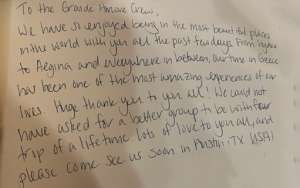 To the Grande Amore Crew,
We have so enjoyed being in the most beautiful places
in the world with you all the past ten days. From
to Aegina and everywhere in between, our time in Greece
has been one of the most amazing experiences of our
lives. Huge thank you to you all! We could not
have asked for a better group to be with for our
trip of a lifetime. Lots of love to you all, and
please come see us soon in Austin, TX USA!